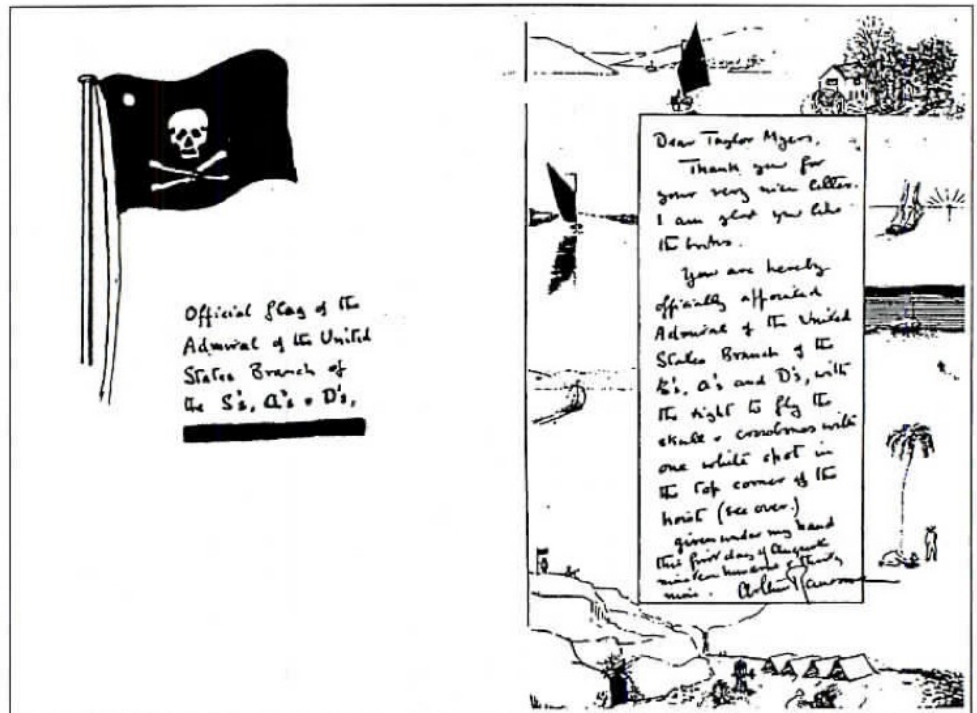 Official flag of the
Admiral of the United
States Branch of
the S's, A's + D's,
Dear Taylor Myers,
Thank you for
your very nice letter.
I am glad you like
the books.
You are hereby
officially appointed
Admiral of the United
States Branch of the
S's, A's and D's, with
the right to fly the
skull + crossbones with
one white spot in
the top corner of the
hoist (see over.)
given under my hand
this first day of August
nineteen hundred & thirty
nine. Arthur Ransome